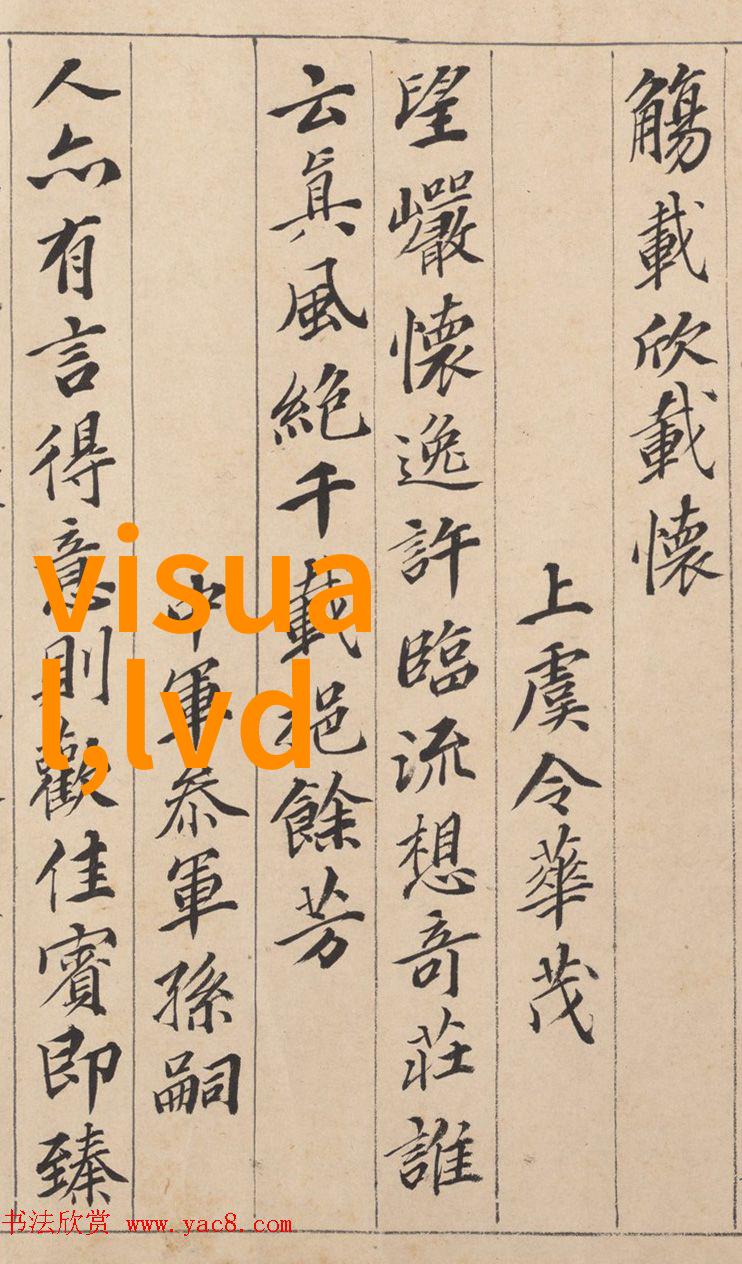 觴載欣載懷
上虞令華茂
望巖懷逸許臨流想奇莊誰
云真風絕千載挹餘芳
中軍叅軍孫嗣
人亦有言得意則歡佳賓即臻
visua
l,lvd
书法欣赏 www.yac8.com